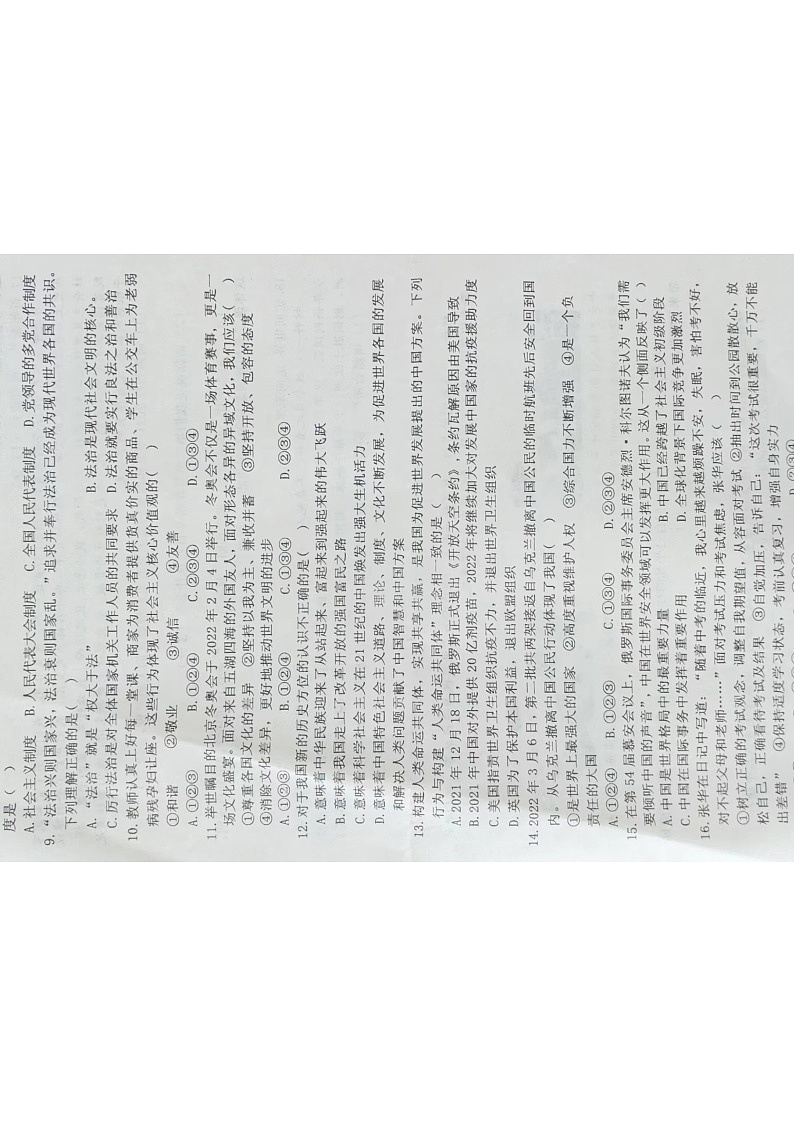 度是（ ）
A.社会主义制度 B.人民代表大会制度 C.全国人民代表制度 D.党领导的多党合作制度
9.“法治兴则国家兴，法治衰则国家乱。”追求并奉行法治已经成为现代世界各国的共识。
下列理解正确的是（ ）
A.“法治”就是“权大于法” B.法治是现代社会文明的核心。
C.厉行法治是对全体国家机关工作人员的共同要求 D.法治就要实行良法之治和善治
10.教师认真上好每一堂课、商家为消费者提供货真价实的商品、学生在公交车上为老弱
病残孕妇让座。这些行为体现了社会主义核心价值观的（ ）
①和谐 ②敬业 ③诚信 ④友善
A.①②③ B.①②④ C.②③④ D.①③④
11.举世瞩目的北京冬奥会于2022年2月4日举行。冬奥会不仅是一场体育赛事，更是一
场文化盛宴。面对来自五湖四海的外国友人，面对形态各异的异域文化，我们应该（ ）
①尊重各国文化的差异 ②坚持以我为主、兼收并蓄 ③坚持开放、包容的态度
④消除文化差异，更好地推动世界文明的进步
A.①②③ B.①②④ C.①③④ D.②③④
12.对于我国新的历史方位的认识不正确的是（ ）
A.意味着中华民族迎来了从站起来、富起来到强起来的伟大飞跃
B.意味着我国走上了改革开放的强国富民之路
C.意味着科学社会主义在21世纪的中国焕发出强大生机活力
D.意味着中国特色社会主义道路、理论、制度、文化不断发展，为促进世界各国的发展
和解决人类问题贡献了中国智慧和中国方案
13.构建人类命运共同体，实现共享共赢，是我国为促进世界发展提出的中国方案。下列
行为与构建“人类命运共同体”理念相一致的是（ ）
A.2021年12月18日，俄罗斯正式退出《开放天空条约》，条约瓦解原因由美国导致
B.2021年中国对外提供20亿剂疫苗，2022年将继续加大对发展中国家的抗疫援助力度
C.美国指责世界卫生组织抗疫不力，并退出世界卫生组织
D.英国为了保护本国利益，退出欧盟组织
14.2022年3月6日，第二批共两架接返自乌克兰撤离中国公民的临时航班先后安全回到国
内。从乌克兰撤离中国公民行动体现了我国（ ）
①是世界上最强大的国家 ②高度重视维护人权 ③综合国力不断增强 ④是一个负
责任的大国
A.①②④ B.①②③ C.①③④ D.②③④
15.在第54届慕安会议上，俄罗斯国际事务委员会主席安德烈·科尔图诺夫认为“我们需
要倾听中国的声音”，中国在世界安全领域可以发挥更大作用。这从一个侧面反映了（ ）
A.中国是世界格局中的最重要力量 B.中国已经跨越了社会主义初级阶段
C.中国在国际事务中发挥着重要作用 D.全球化背景下国际竞争更加激烈
16.张华在日记中写道：“随着中考的临近，我心里越来越烦躁不安，失眠，害怕考不好，
对不起父母和老师……”面对考试压力和考试焦虑，张华应该（ ）
①树立正确的考试观念，调整自我期望值，从容面对考试 ②抽出时间到公园散散心，放
松自己，正确看待考试及结果 ③自觉加压，告诉自己：“这次考试很重要，千万不能
出差错” ④保持适度学习状态，考前认真复习，增强自身实力
D.②③④